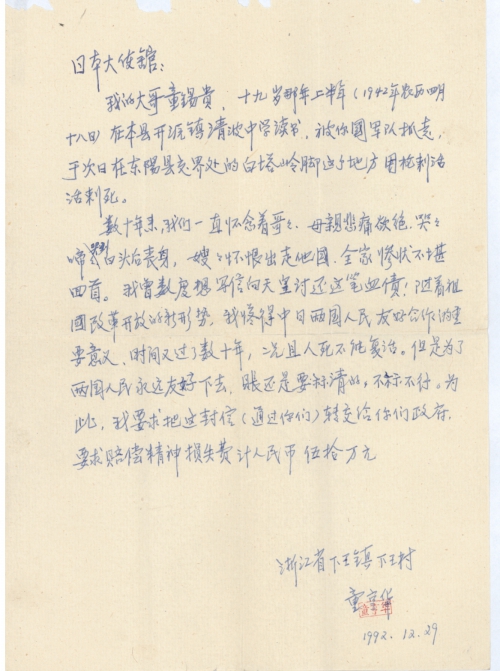 日本大使舘：
我的大哥童錫貴，十九岁那年上半年（1942年农历四月
十八日）在本县开元镇清波中学读书，被你國军队抓走，
于次日在东陽县交界处的白塔岭脚这个地方用枪刺活
活刺死。
数十年来，我们一直怀念着哥々，母親悲痛欲绝，哭々
啼々白头后丧身，嫂々怀恨出走他國，全家惨状不堪
回首。我曾数度想写信向天皇讨还这笔血债！随着祖
國改革开放的新形势，我懂得中日两國人民友好合作的重
要意义，时间又过了数十年，况且人死不能复活。但是为了
两國人民永远友好下去，賬还是要标清的，不标不行。为
此，我要求把这封信（通过你们）转交给你们政府，
要求賠偿精神损失费计人民币伍拾万元
浙江省下王镇下王村
童
1992.12.29